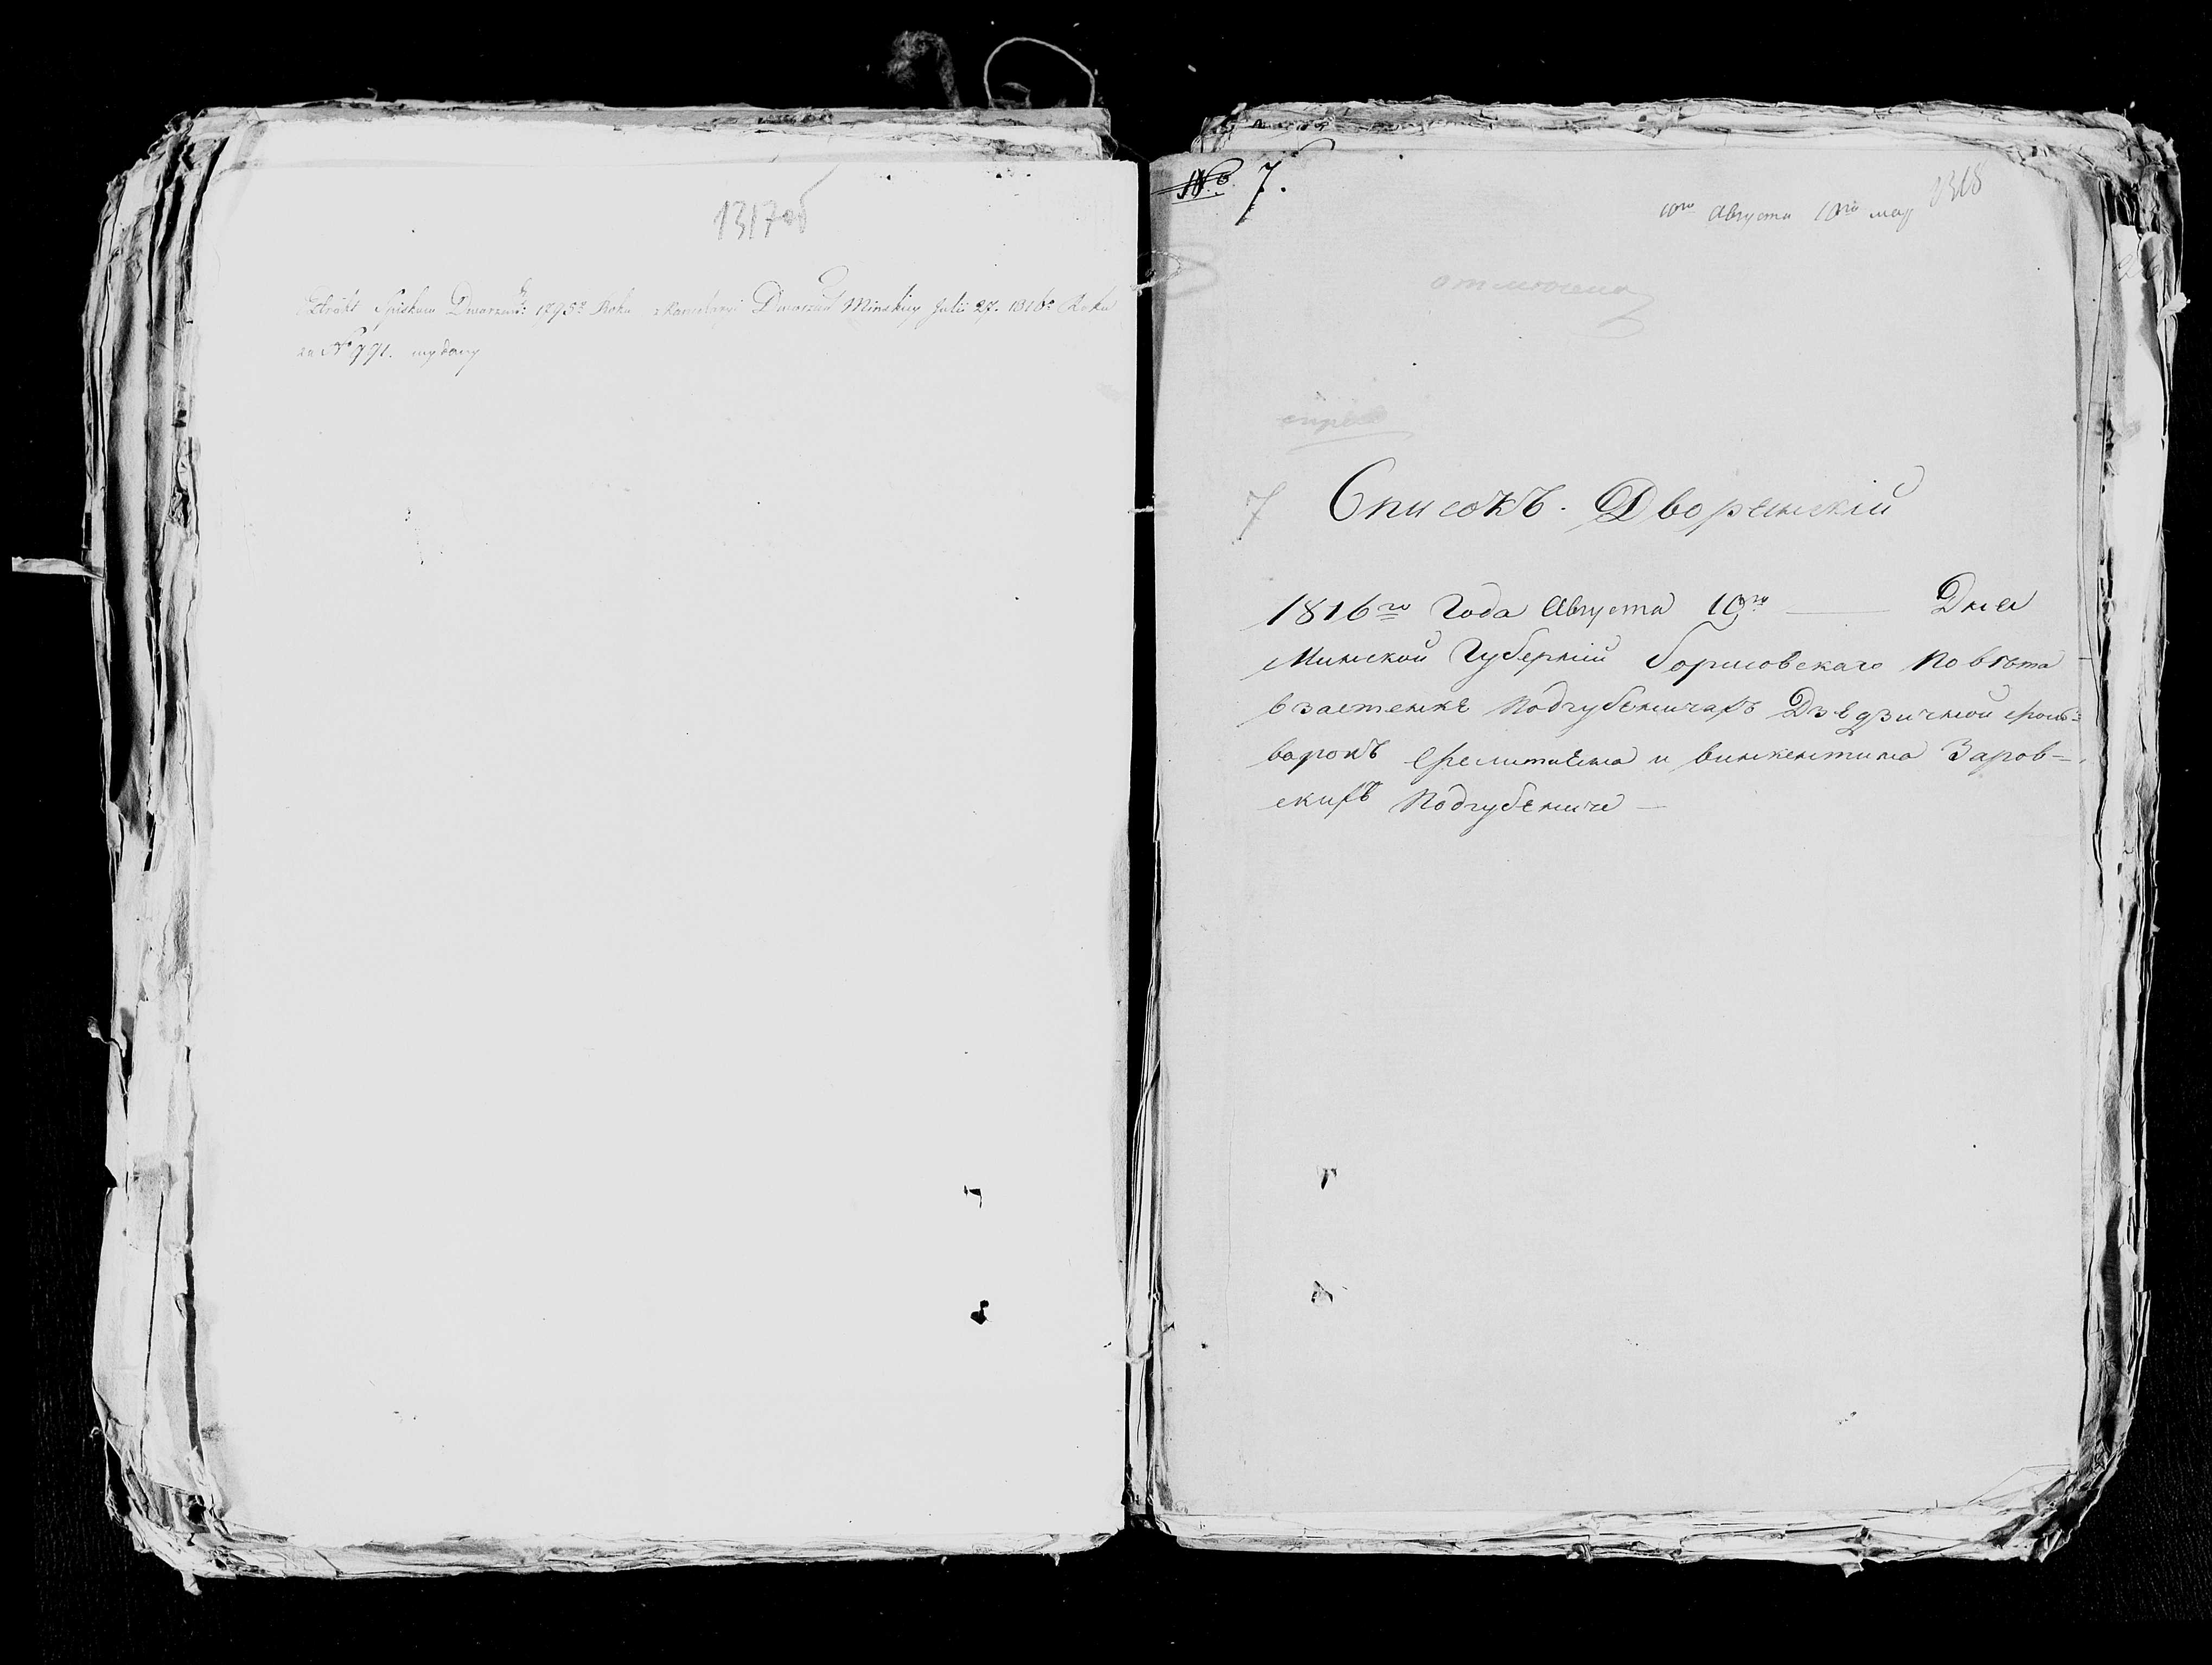 1317об
Extrakt Spiskow Dworzań: 1795º Roku z Kancelaryi Dworzań Minskiey Julii 27. 1816º Roku
za Nº 991. wydany
№ 7.
10го Августа 10го
1318
7 Списокъ Дворянскій
1816го Года Августа 10го — Дня
Минской Губерніи Борисовскаго Повѣта
в застенкѣ Подгубеничахъ Дзѣдзичной фоль=
варокъ и винкентина Заров=
скихъ Подгубеничи —